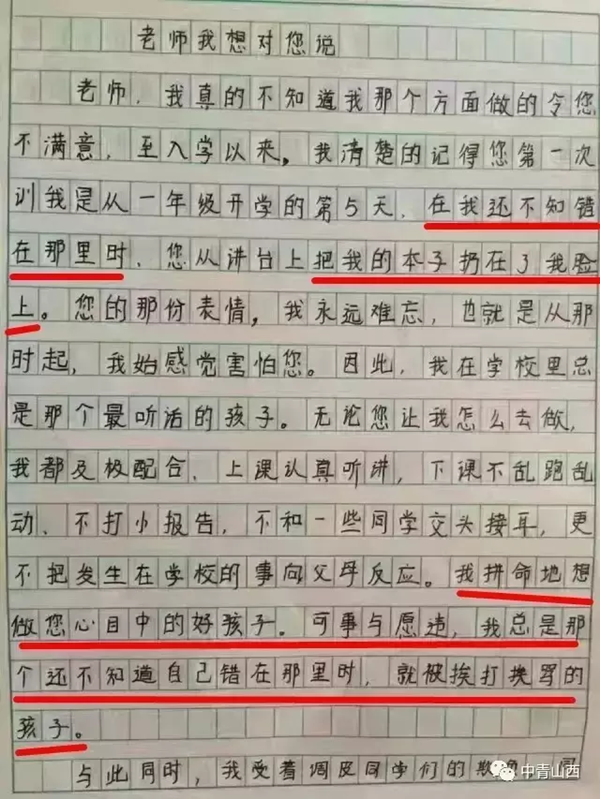 老师我想对您说
老师，我真的不知道我那个方面做的令您
不满意，至入学以来，我清楚的记得您第一次
训我是从一年级开学的第5天，在我还不知错
在那里时，您从讲台上把我的本子扔在了我脸
上。您的那份表情，我永远难忘，也就是从那
时起，我始感觉害怕您。因此，我在学校里总
是那个最听话的孩子。无论您让我怎么去做，
我都及极配合、上课认真听讲，下课不乱跑乱
动、不打小报告，不和一些同学交头接耳，更
不把发生在学校的事向父母反应。我拼命地想
做您心目中的好孩子。可事与愿违，我总是那
个还不知道自己错在那里时，就被挨打挨骂的
孩子。
与此同时，我受着调皮同学们的欺
中青山西